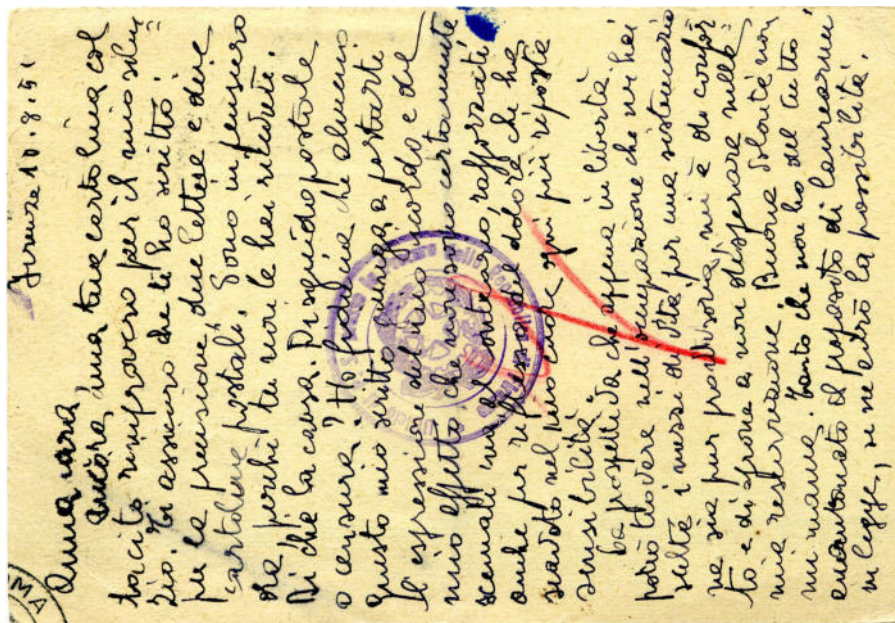 Firenze 10.8.51
Anna cara
ancora, una tua cartolina col
tacito rimprovero per il mio silen=
zio. Ti assicuro che ti ho scritto:
per la precisione, due lettere e due
cartoline postali. Sono in pensiero
ora, perché tu non le hai ricevute.
Di chi la causa. Disguido postale
o censura? Ho fiducia che almeno
questo mio scritto giunga a portarti
l'espressione del mio ricordo e del
mio affetto che non sono certamente
scemati ma al contrario rafforzati
anche per riflesso del dolore che ha
scavato nel mio cuore ogni più riposta
sensibilità.
La prospettiva che appena in libertà
potrò trovare nell'occupazione che mi hai
scelta i mezzi di vita per una sistemazio
ne sia pur provvisoria mi è di confor
to e di sprone a non disperare nella
mia resurrezione. Buona volontà non
mi manca. Tanto che non ho del tutto
accantonato il proposito di laurearmi
in legge, se ne avrò la possibilità.
ROMA